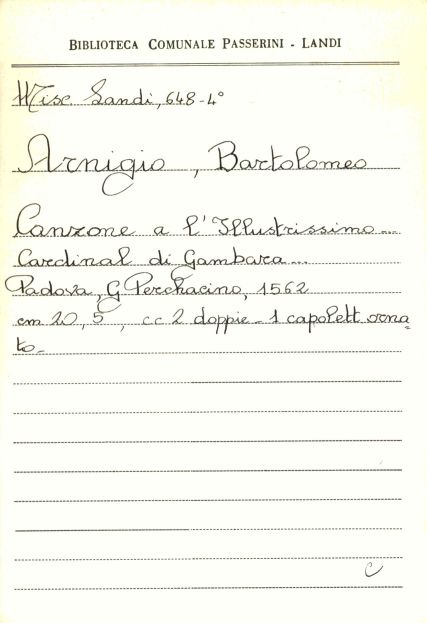 BIBLIOTECA COMUNALE PASSERINI - LANDI
Misc Landi, 648-4°
Arnigio, Bartolomeo
Canzone a l'Illustrissimo...
Cardinal di Gambara...
Padova, G Perchacino, 1562
cm 20,5, cc 2 doppie - 1 capolett orna=
to-
C